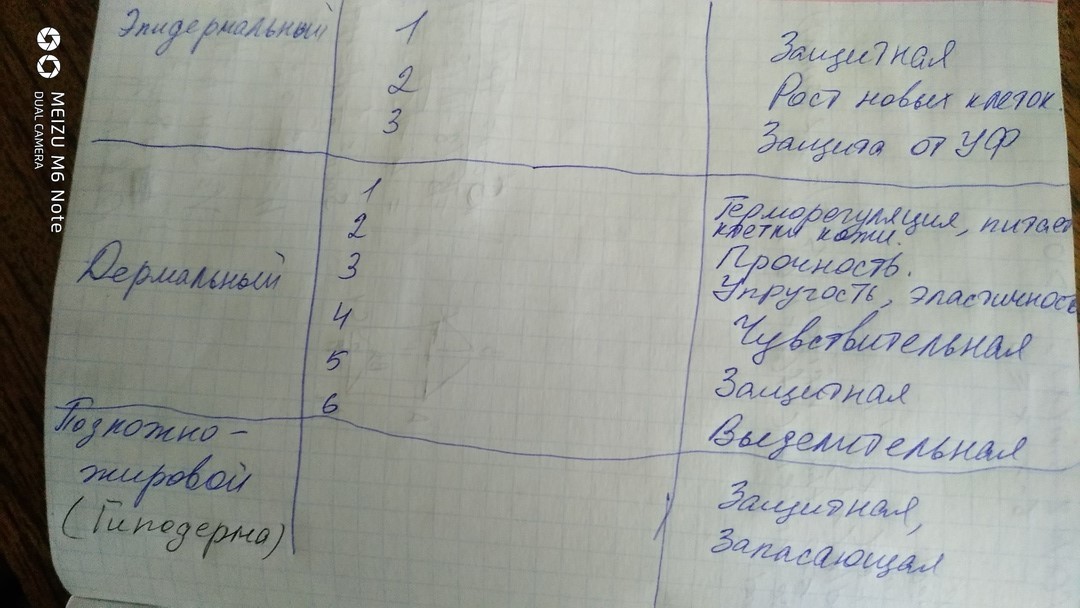 Эпидермальный
1
2
3
Защитная
Рост новых клеток.
Защита от УФ
Дермальный
1
2
3
4
5
6
Терморегуляция, питает
клетки кожи.
Прочность.
Упругость, эластичность
Чувствительная
Защитная
Выделительная
Подкожно-
жировой
(Гиподерма)
Защитная,
Запасающая
MEIZU M6 Note
DUAL CAMERA